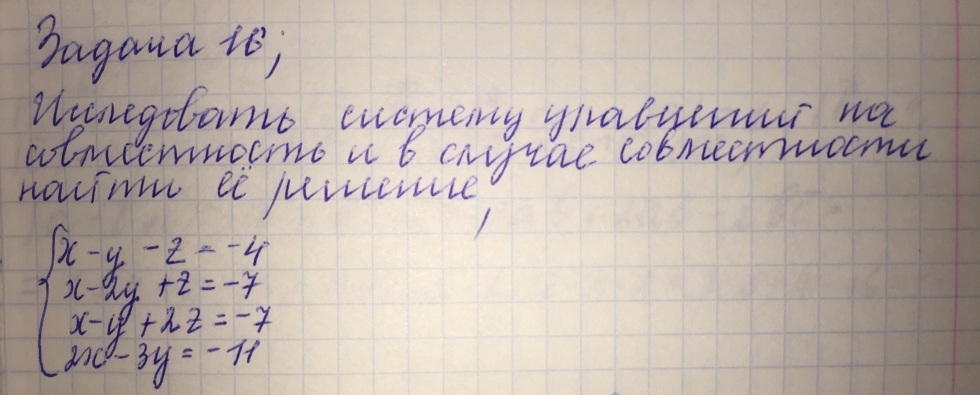 Задача 16;
Исследовать систему уравнений на
совместность и в случае совместности
найти её решение,
x - y - z = -4
x - 2y + z = -7
x - y + 2z = -7
2x - 3y = -11